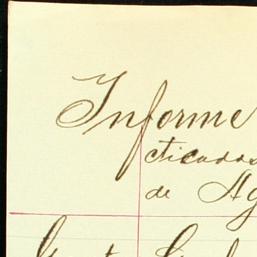 Informe
cticadas
de Ag